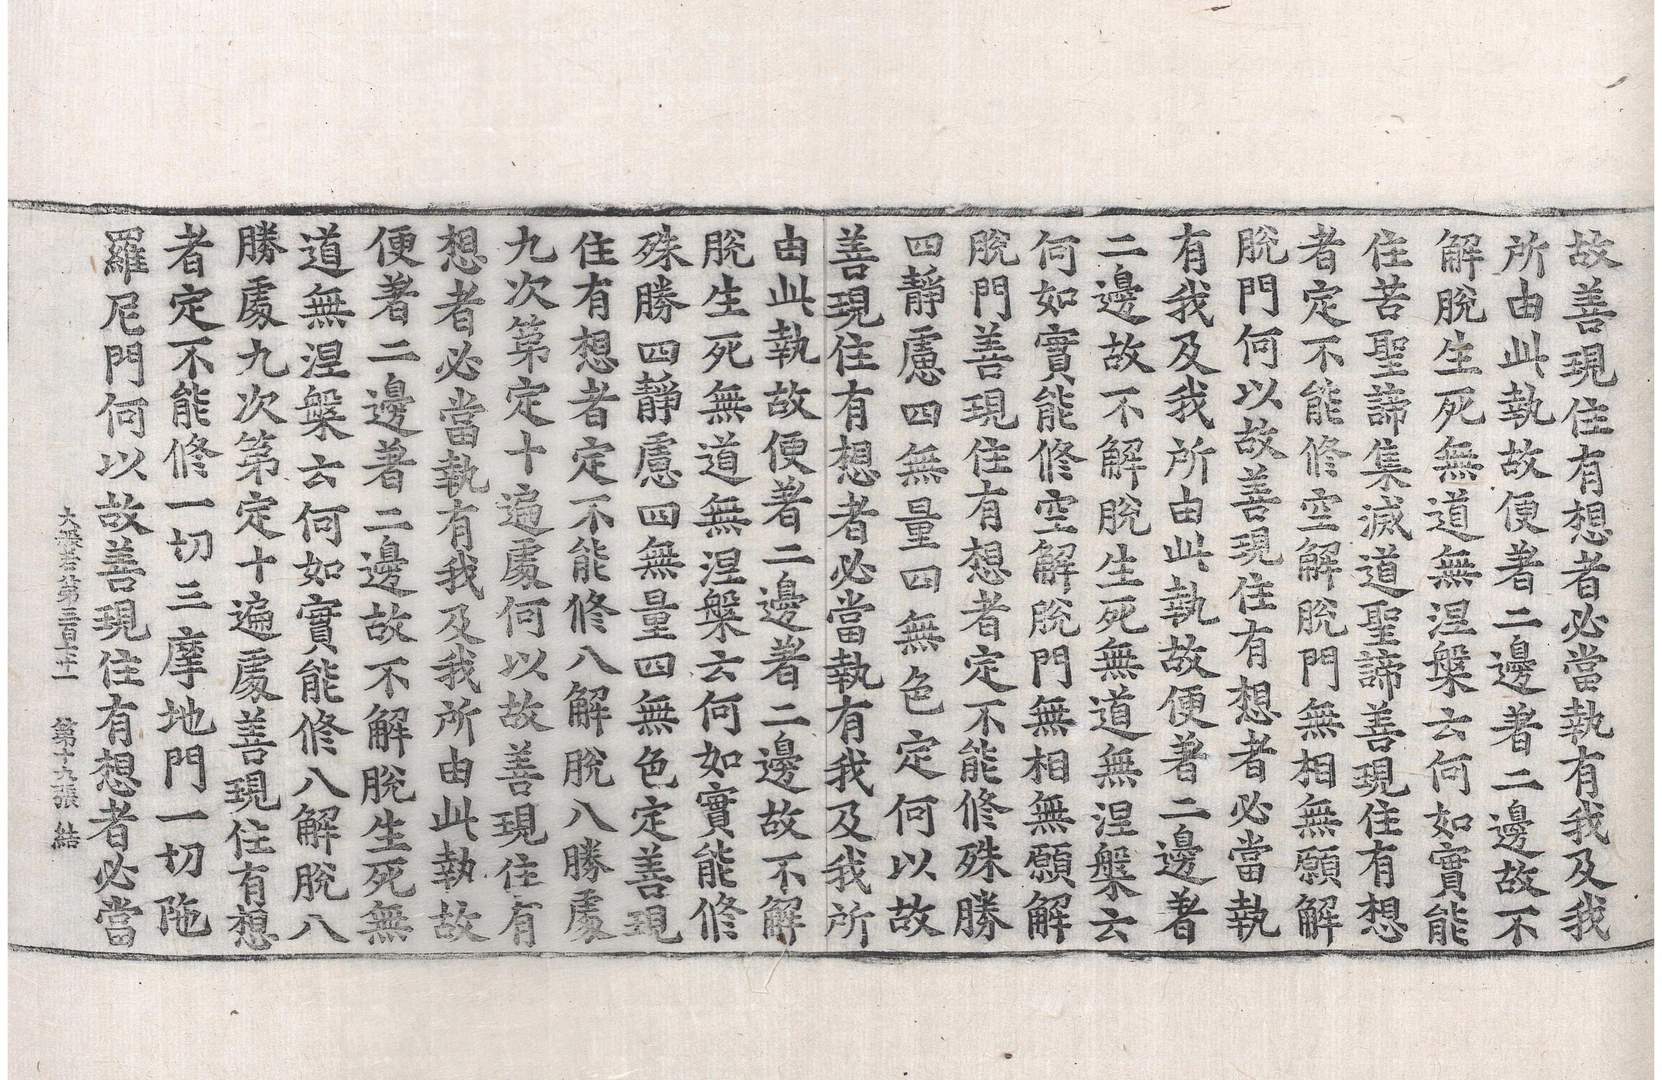 故善現住有想者必當執有我及我
所由此執故便著二邊著二邊故不
解脫生死無道無涅槃云何如實能
住苦聖諦集滅道聖諦善現住有想
者定不能修空解脫門無相無願解
脫門何以故善現住有想者必當執
有我及我所由此執故便著二邊著
二邊故不解脫生死無道無涅槃云
何如實能修空解脫門無相無願解
脫門善現住有想者定不能修殊勝
四靜慮四無量四無色定何以故
善現住有想者必當執有我及我所
由此執故便著二邊著二邊故不解
脫生死無道無涅槃云何如實能修
殊勝四靜慮四無量四無色定善現
住有想者定不能修八解脫八勝處
九次第定十遍處何以故善現住有
想者必當執有我及我所由此執故
便著二邊著二邊故不解脫生死無
道無涅槃云何如實能修八解脫八
勝處九次第定十遍處善現住有想
者定不能修一切三摩地門一切陁
羅尼門何以故善現住有想者必當
大般若第三百七十一 第十九張 結